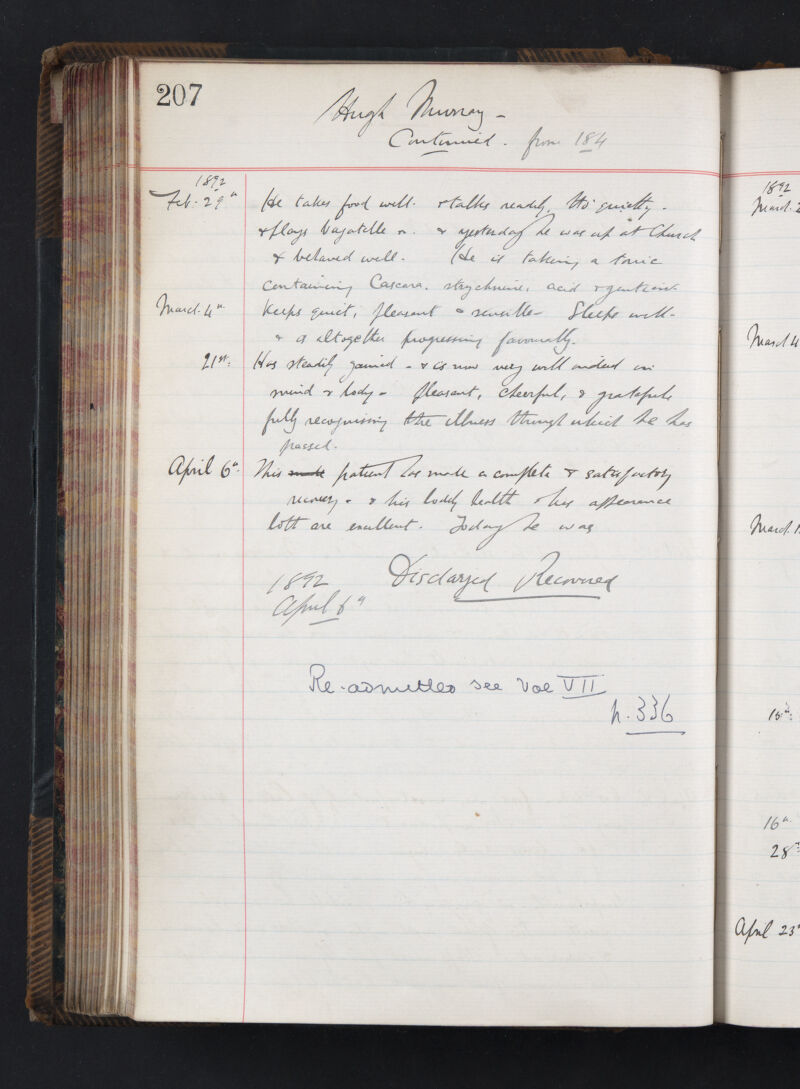 207
Hugh Murray -
Continued. from 184
1892
Feb. 29th He takes food well. & talks readily, tho' quietly.
& plays bagatelle & yesterday he was up at Church
& behaved well. He is taking a tonic
containing Cascara, strychnine, acid & gentian.
March 4th Keeps quiet, pleasant & sensible. Sleeps well.
& is altogether progressing favourably.
21st: Has steadily gained - & is now very well indeed in
mind & body - pleasant, cheerful, & grateful,
fully recognising the illness through which he has
passed.
April 6th This made patient has made a complete & satisfactory
recovery - & his bodily health & his appearance
both are excellent. Today he was
1892 Discharged Recovered
April 6th
Re-admitted see Vol VII
p. 336
1892
March 2
March 4
March 1
15th:
16th
28th:
April 23